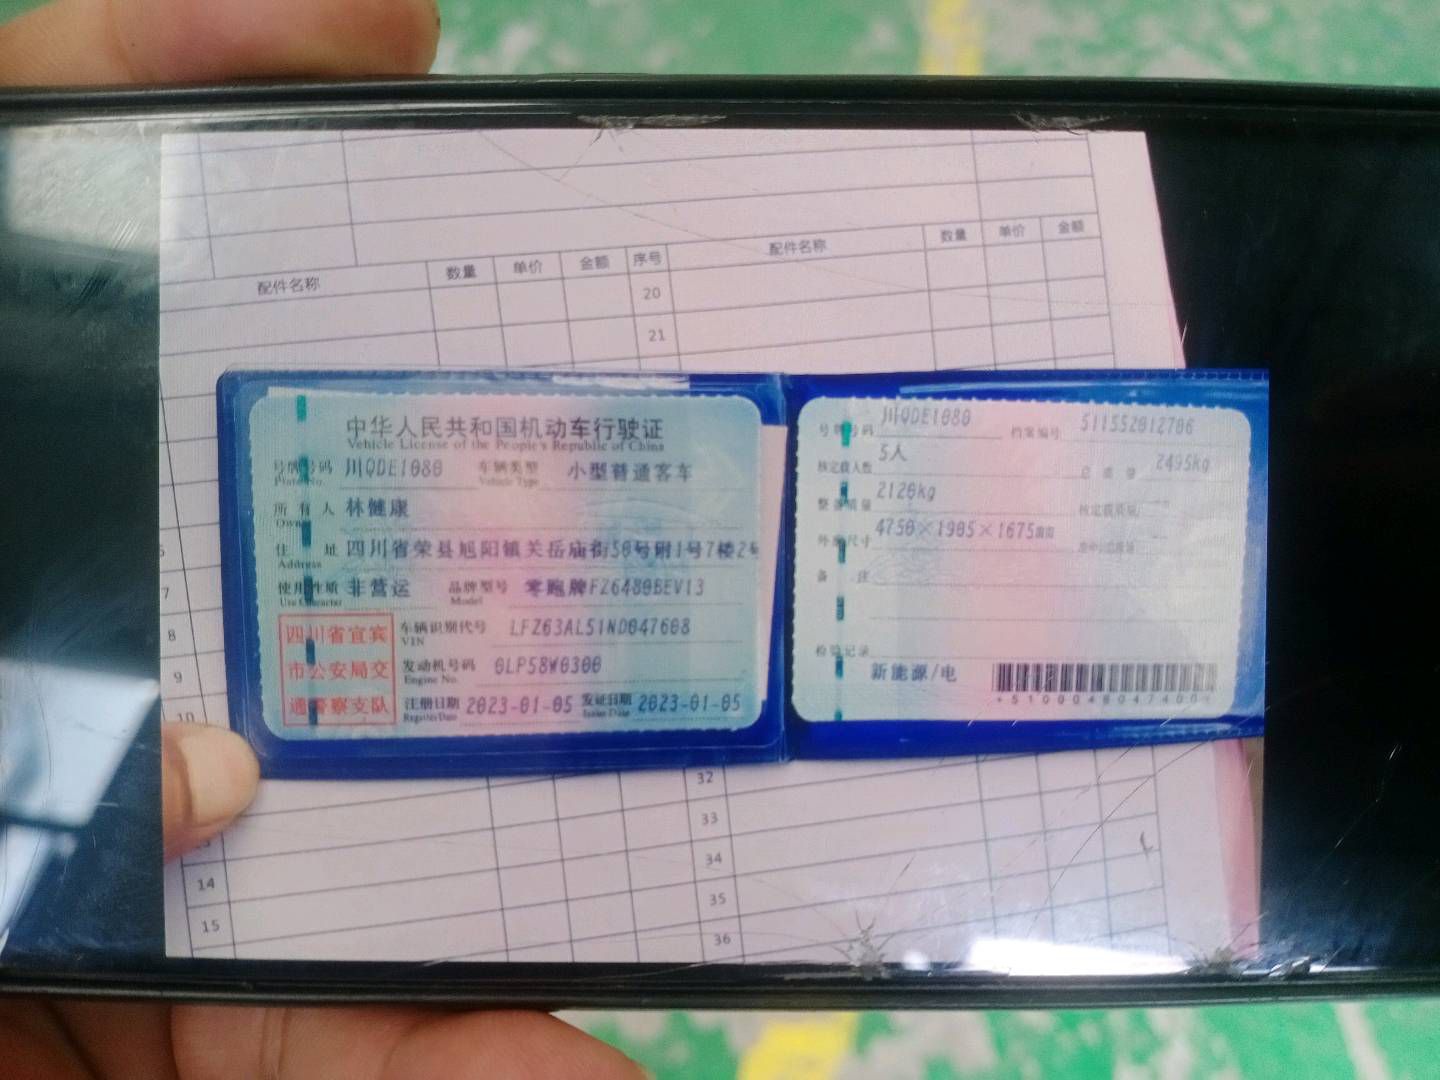 配件名称 数量 单价 金额 序号 配件名称 数量 单价 金额
20
21
中华人民共和国机动车行驶证
Vehicle License of the People's Republic of China
号牌号码 川QDE1080 车辆类型 小型普通客车
Plate No. Vehicle Type
所有人 林健康
Owner
住址 四川省荣县旭阳镇关岳庙街50号附1号7楼2号
Address
使用性质 非营运 品牌型号 零跑牌FZ6480BEV13
Use Character Model
四川省宜宾
市公安局交
通警察支队
车辆识别代号 LFZ63AL51ND047608
VIN
发动机号码 0LP58W0300
Engine No.
注册日期 2023-01-05 发证日期 2023-01-05
Register Date Issue Date
号牌号码 川QDE1080 档案编号 511552012706
核定载人数 5人 总质量 2495kg
整备质量 2120kg 核定载质量
外廓尺寸 4750×1905×1675mm
备注
检验记录
新能源/电
7
8
9
10
14
15
32
33
34
35
36